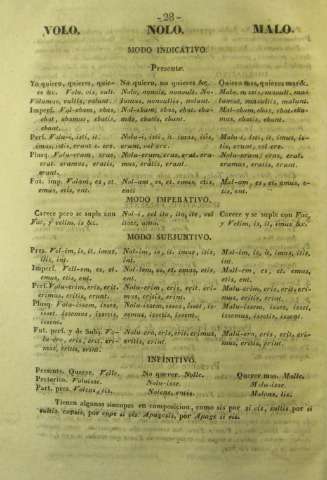 -28-
VOLO. NOLO. MALO.
MODO INDICATIVO.
Presente.
Yo quiero, quieres, quiere &c. Volo, vis, vult. Volumus, vultis, volunt.
No quiero, no quieres &c. Nolo, nonvis, nonvult. Nolumus, nonvultis, nolunt.
Quiero mas, quieres mas &c. Malo, mavis, mavult, malumus, mavultis, malunt.
Imperf. Vol-ebam, ebas, ebat, ebamus, ebatis, ebant.
Nol-ebam, ebas, ebat, ebamus, ebatis, ebant.
Mal-ebam, ebas, ebat, ebamus, ebatis, ebant.
Perf. Volu-i, isti, it, imus, istis, erunt vel ere.
Nolu-i, isti, it, imus, istis, erunt, vel ere.
Malu-i, isti, it, imus, istis, erunt, vel ere.
Plusq. Volu-eram, eras, erat, eramus, eratis, erant.
Nolu-eram, eras, erat, eramus, eratis, erant.
Malu-eram, eras, erat, eramus, eratis, erant.
Fut. imp. Volam, es, et, emus, etis, ent.
Nol-am, es, et, emus, etis, ent.
Mal-am, es, et, emus, etis, ent.
MODO IMPERATIVO.
Carece pero se suple con Fac, y velim, is &c.
Nol-i, vel ito, ito, ite, vel itote,
Carece y se suple con Fac, y Velim, is, it, imus &c.
MODO SUBJUNTIVO.
Pres. Vel-im, is, it, imus, itis, int.
Nol-im, is, it, imus, itis, int.
Mal-im, is, it, imus, itis, int.
Imperf. Vell-em, es, et, emus, etis, ent.
Noll-em, es, et, emus, etis, ent.
Mall-em, es, et, emus, etis, ent.
Perf. Volu-erim, eris, erit, erimus, eritis, erint.
Nolu-erim, eris, erit, erimus, eritis, erint.
Malu-erim, eris, erit, erimus, eritis, erint.
Plusq. Volu-issem, isses, isset, issemus, issetis, issent.
Nolu-issem, isses, isset, issemus, issetis, issent.
Malu-issem, isses, isset, issemus, issetis, issent.
Fut. perf. y de Subj. Volu-ero, eris, erit, erimus, eritis, erint.
Nolu-ero, eris, erit, erimus, eritis, erint.
Malu-ero, eris, erit, erimus, eritis, erint.
INFINITIVO.
Presente. Querer. Velle. No querer. Nolle. Querer mas. Malle.
Preterito. Voluisse. Nolu-isse. Malu-isse.
Part. pres. Volens, tis. Nolens, entis. Malens, tis.
Tienen algunas síncopas en composicion, como sis por si vis, sultis por si
vultis, capsis, por cape si vis, Apagesis, por Apage si vis.